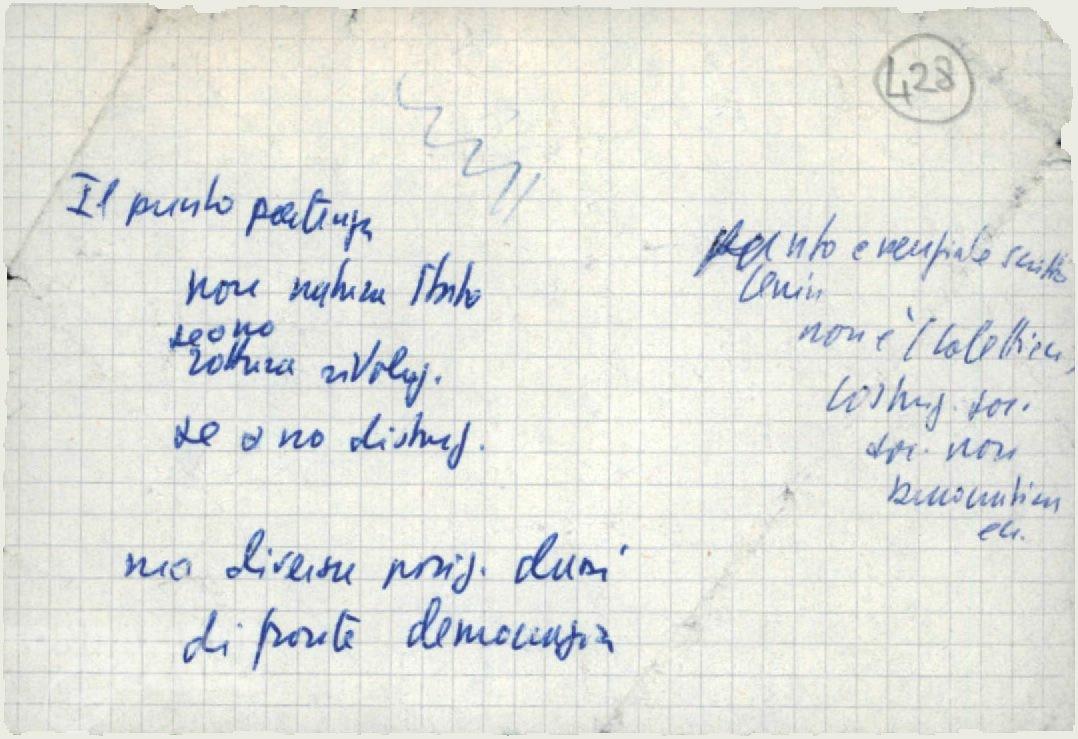 428
Il punto partenza
non natura Stato
se o no
rottura rivoluz.
se o no distruz.
ma diverse posiz. classi
di fronte democrazia
punto essenziale scritto
Lenin
non è
costruz. soc.
soc. non
democratica
ecc.